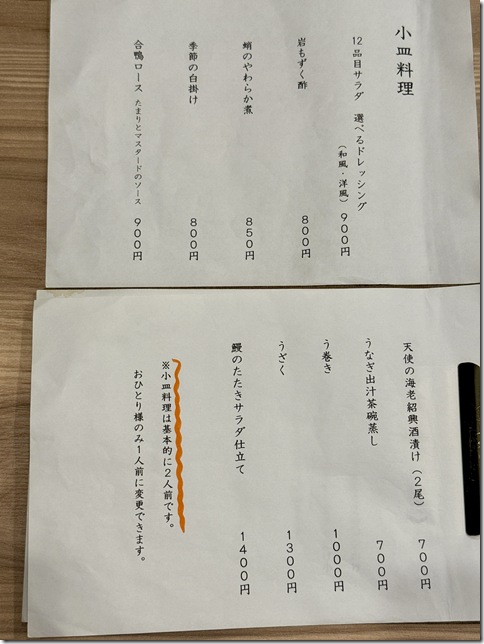 小皿料理
12品目サラダ 選べるドレッシング(和風・洋風) 900円
岩もずく酢 800円
蛸のやわらか煮 850円
季節の白掛け 800円
合鴨ロース たまりとマスタードのソース 900円
天使の海老紹興酒漬け(2尾) 700円
うなぎ出汁茶碗蒸し 700円
う巻き 1000円
うざく 1300円
鰻のたたきサラダ仕立て 1400円
※小皿料理は基本的に2人前です。
おひとり様のみ1人前に変更できます。